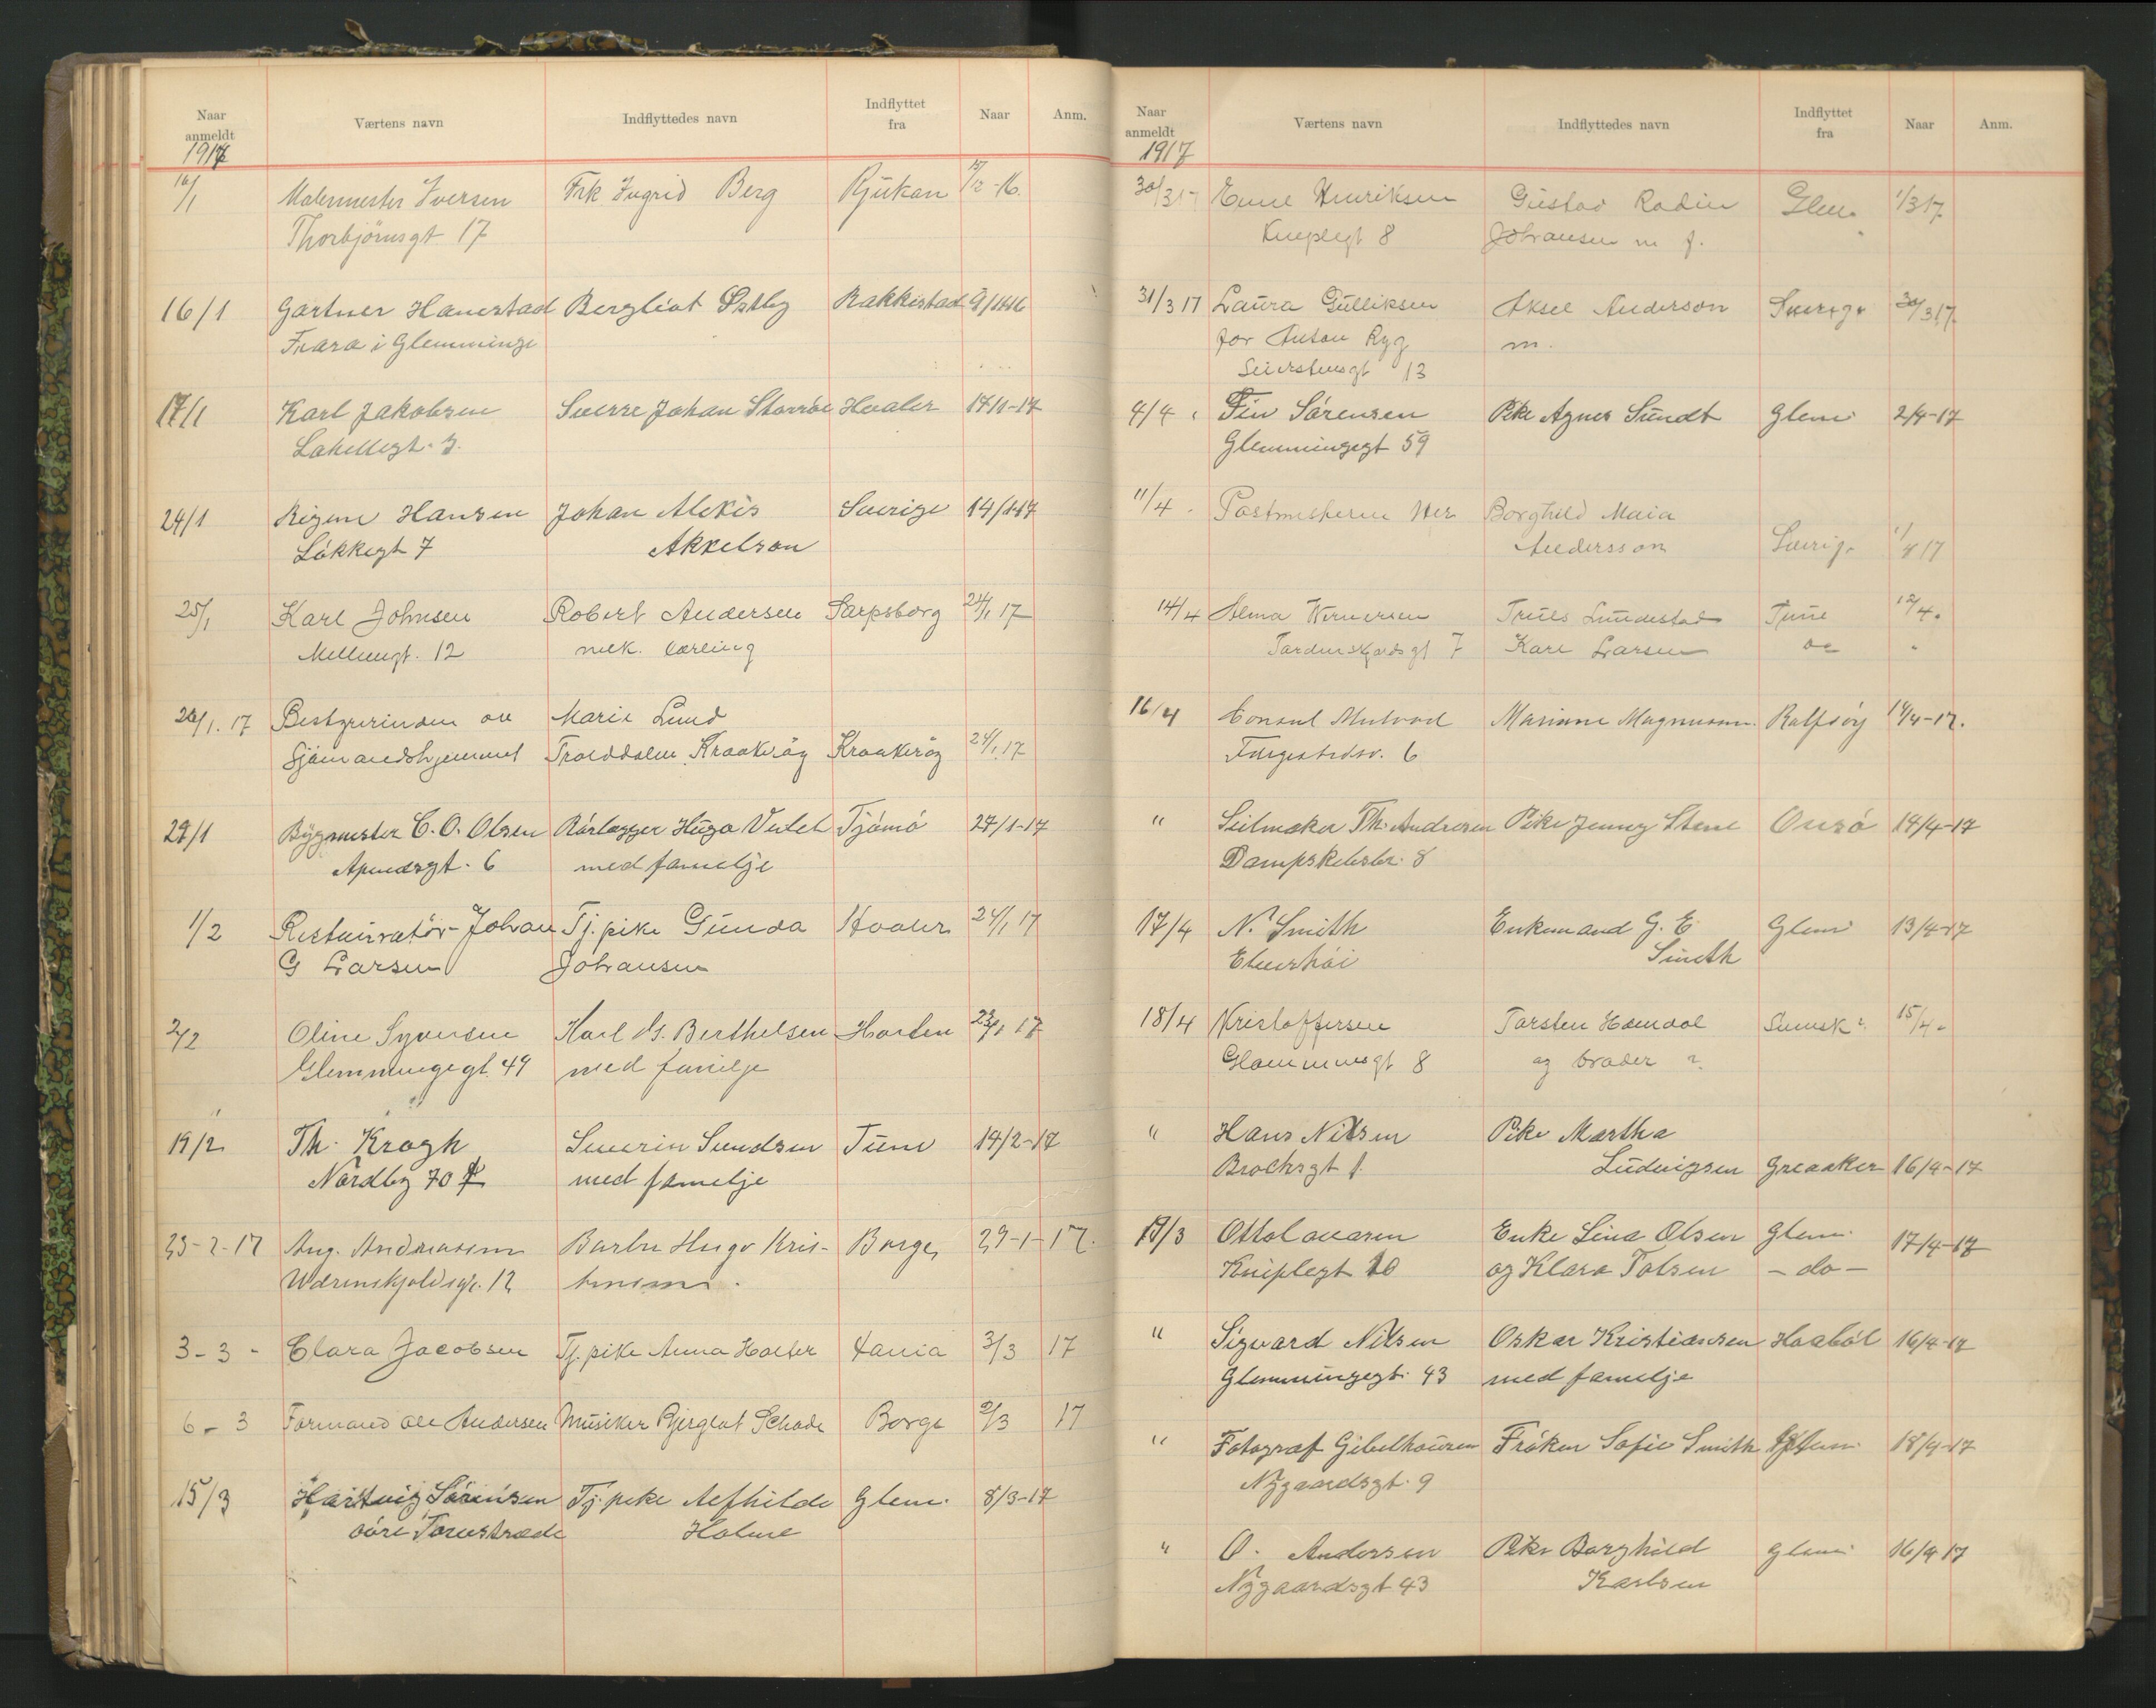 Naar anmeldt Værtens navn Indflyttedes navn Indflyttet fra Naar Anm.
1917
16/1 Malermester Iversen Frk Ingrid Berg Rjukan 15/12-16.
Thorbjörnsgt 17
16/1 Gartner Hanestad Bergliot Østby Rakkestad
Trara i Glemminge
17/1 Karl Jakobsen Sverre Johan Hvaler 17/1-17
24/1 Hansen Johan Aleksis Sverige 14/1-17
Løkkegt 7 Akkelson
25/1 Karl Johnsen Robert Andersen Sarpsborg 24/1 17
Mellemgt. 12 mek. lærling
26/1.17 Bestyrerinden av Marie Lund
Sjömandshjemmet Trolddalen Kraakeröy Kraakeröy 24/1.17
27/1 Bygmester C. O. Olsen Rörlegger Hugo Tjömö 27/1-17
Apenesgt. 6 med familje
1/2 Restauratör Johan Tj. pike Gunda Hvaler 24/1 17
G Larsen Johansen
2/2 Oline Syversen Karl Berthelsen Horten 17
Glemmingegt. 49 med familje
19/2 Th. Krogh Severin Tune 14/2-17
Nordby 70 med familje
23-2-17 Aug. Andreassen Hugo Kris- Borge, 29-1-17.
Wærenskjoldsgt. 12 tensen.
3-3- Clara Jacobsen Tj. pike Anna Holter 3/3 17
6-3 Formand Ole Andersen Musiker Schade Borge 2/3 17
15/3 Hartvig Sörensen Tj. pike Alfhilde Glem. 8/3-17
Övre Torvestræde Holme
Naar anmeldt Værtens navn Indflyttedes navn Indflyttet fra Naar Anm.
1917
30/3 17 Henriksen Gustav Glem. 1/3 17
Kniplegt 8 Johansen m f.
31/3 17 Laura Gulliksen Aksel Anderson Sverige 30/3 17.
for Anton Ryg m.
13
4/4 Fin Sörensen Pike Agnes Sundt Glem. 2/4-17
Glemmingegt 59
11/4 Postmesteren her Borghild Maia
Andersson Sverige 1/4 17
14/4 Alma Wernersen Truls Lundestad Tune 12/4.
Tordenskjoldsgt 7 Karl Larsen do "
16/4 Consul Mutvad Mariane Magnussen. Rolfsöy 14/4-17.
Færgestedsv. 6
" Seilmaker Th. Andresen Pike Jenny Stene Onsö 14/4-17
8
17/4 N. Smith Enkemand G. E. Glem. 13/4-17
Elverhöi Smith
18/4 Kristoffersen Torsten Svensk? 15/4-
Glommensgt 8 og broder ?
" Hans Nilsen Pike Martha
Brochsgt 1. Ludvigsen Greaaker 16/4-17
19/3 Enke Lina Olsen Glem. 17/4-17
Kniplegt 10 og Klara Tolsen - do -
" Sigvard Nilsen Oskar Kristiansen Haaböl 16/4-17
Glemmingegt. 43 med familje
" Fotograf Gibelhausen Fröken Sofie Smith Glem. 18/4-17
Nygaardsgt. 9
" O. Andersen Pike Borghild Glem. 16/4 17
Nygaardsgt 43 Karlsen